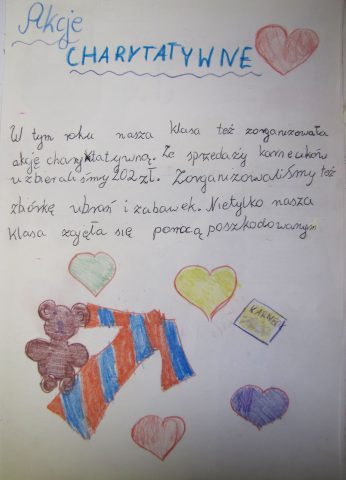 Akcje
CHARYTATYWNE
W tym roku nasza klasa też zorganizowała
akcję charyktatywną. Ze sprzedaży karnecików
uzbieraliśmy 202 zł. Zorganizowaliśmy też
zbiórkę ubrań i zabawek. Nietylko nasza
klasa zajęła się pomocą poszkodowanym
KARNET